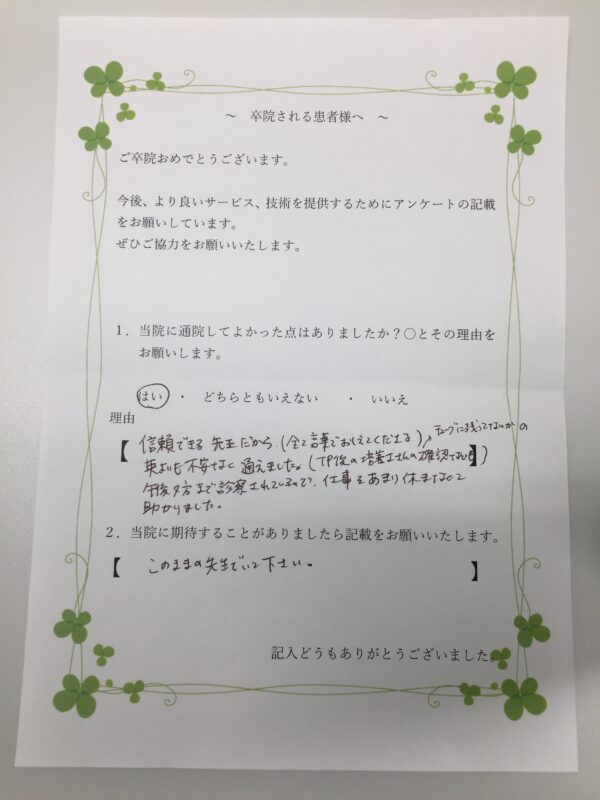 ～ 卒院される患者様へ ～
ご卒院おめでとうございます。
今後、より良いサービス、技術を提供するためにアンケートの記載
をお願いしています。
ぜひご協力をお願いいたします。
１．当院に通院してよかった点はありましたか？〇とその理由を
お願いします。
はい ・ どちらともいえない ・ いいえ
理由
【 信頼できる先生だから（全て言葉でおしえてくださる）、チューブに残ってないかの
不安なく通えました。（ＴＰ後の培養士さんの確認 ）】
午後夕方まで診察されているので、仕事をあまり休まなくて
助かりました。
２．当院に期待することがありましたら記載をお願いいたします。
【 このままの先生でいて下さい。 】
記入どうもありがとうございました。